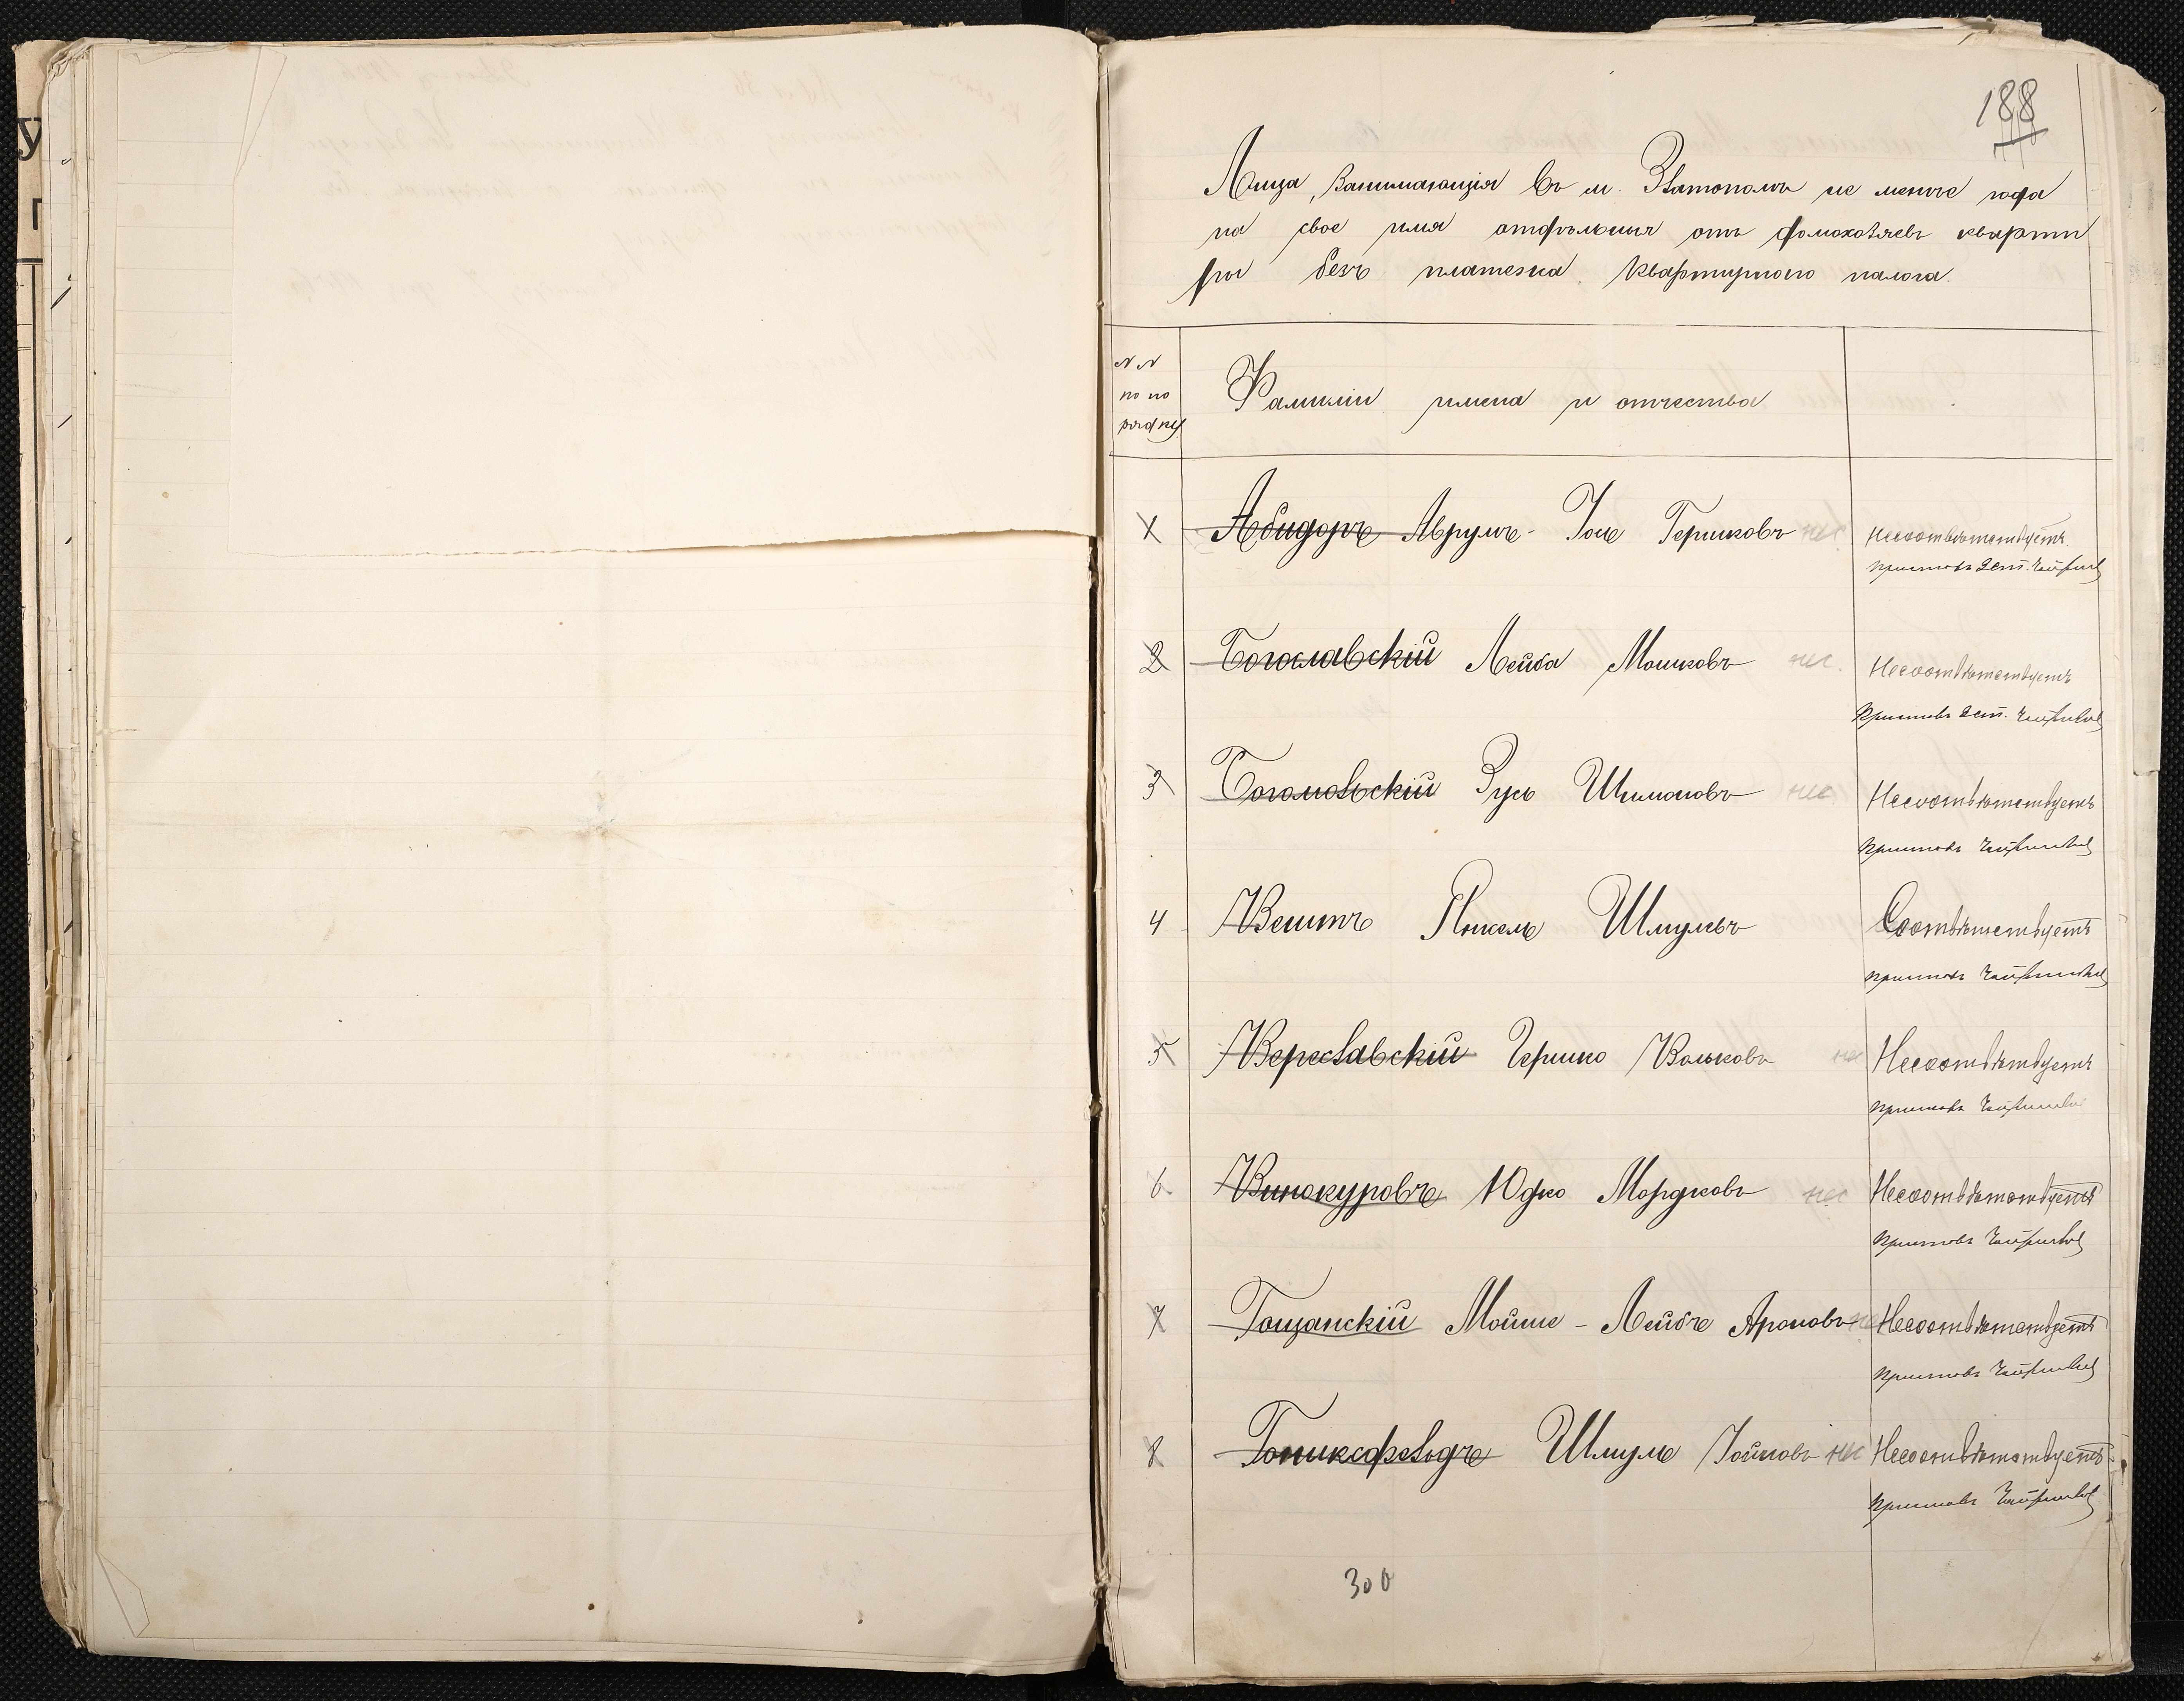 188
Лица, занимающія въ м. Златополѣ не менѣе года
на свое имя отдѣльныя отъ домохозяевъ кварти
ры безъ платежа квартирнаго налога.
NN
по по
рядку
Фамиліи имена и отчества
1 Абидоръ Аврумъ-Іоне Гершковъ нес
Несоотвѣтствуетъ
Приставъ 2 ст.
2 Богославскій Лейба Мошковъ нес.
Несоотвѣтствуетъ
Приставъ 2 ст.
3 Богомольскій Зусь Шимоновъ нес
Несоотвѣтствуетъ
Приставъ
4 Вештъ Янкель Шмулевъ
Соотвѣтствуетъ
Приставъ
5 Вереславскій Гершко Вольковъ не
Несоотвѣтствуетъ
Приставъ
6 Винокуровъ Юдко Мордковъ нес
Несоотвѣтствуетъ
Приставъ
7 Гощанскій Мойше-Лейбъ Ароновъ
Несоотвѣтствуетъ
Приставъ
8 Шмуль нес
Несоотвѣтствуетъ
Приставъ
300
У